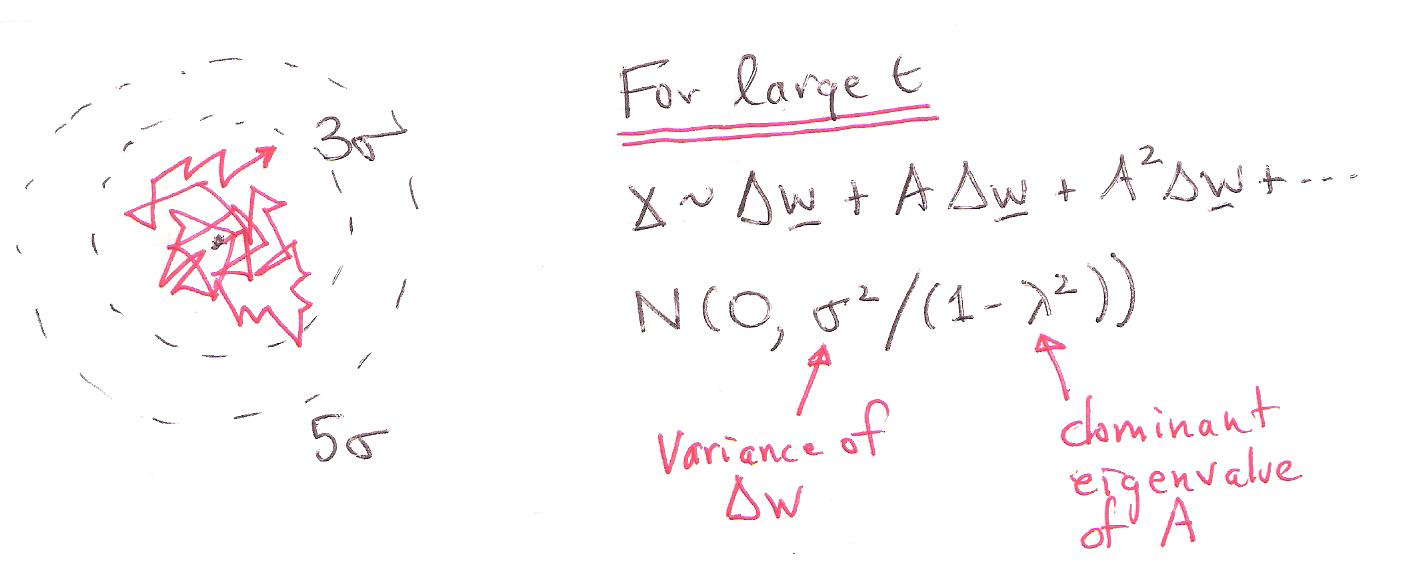 3σ
5σ
For large t
X ~ Δw + A Δw + A² Δw + ...
N(0, σ²/(1-λ²))
Variance of
Δw
dominant
eigenvalue
of A